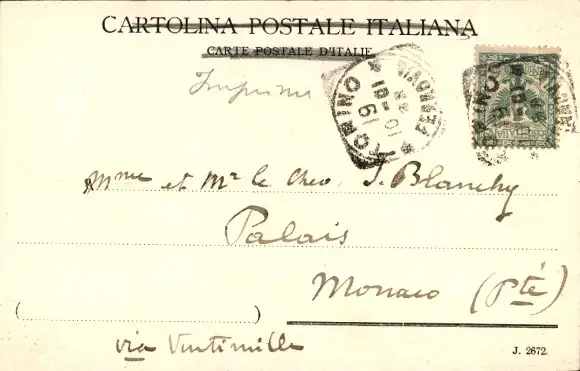 CARTOLINA POSTALE ITALIANA
CARTE POSTALE D'ITALIE
Imprimé
TORINO
FERROVIA
Mme et Mr le Chev. J. Blanchy
Palais
Monaco (Pté)
( )
via Vintimille
J. 2672.